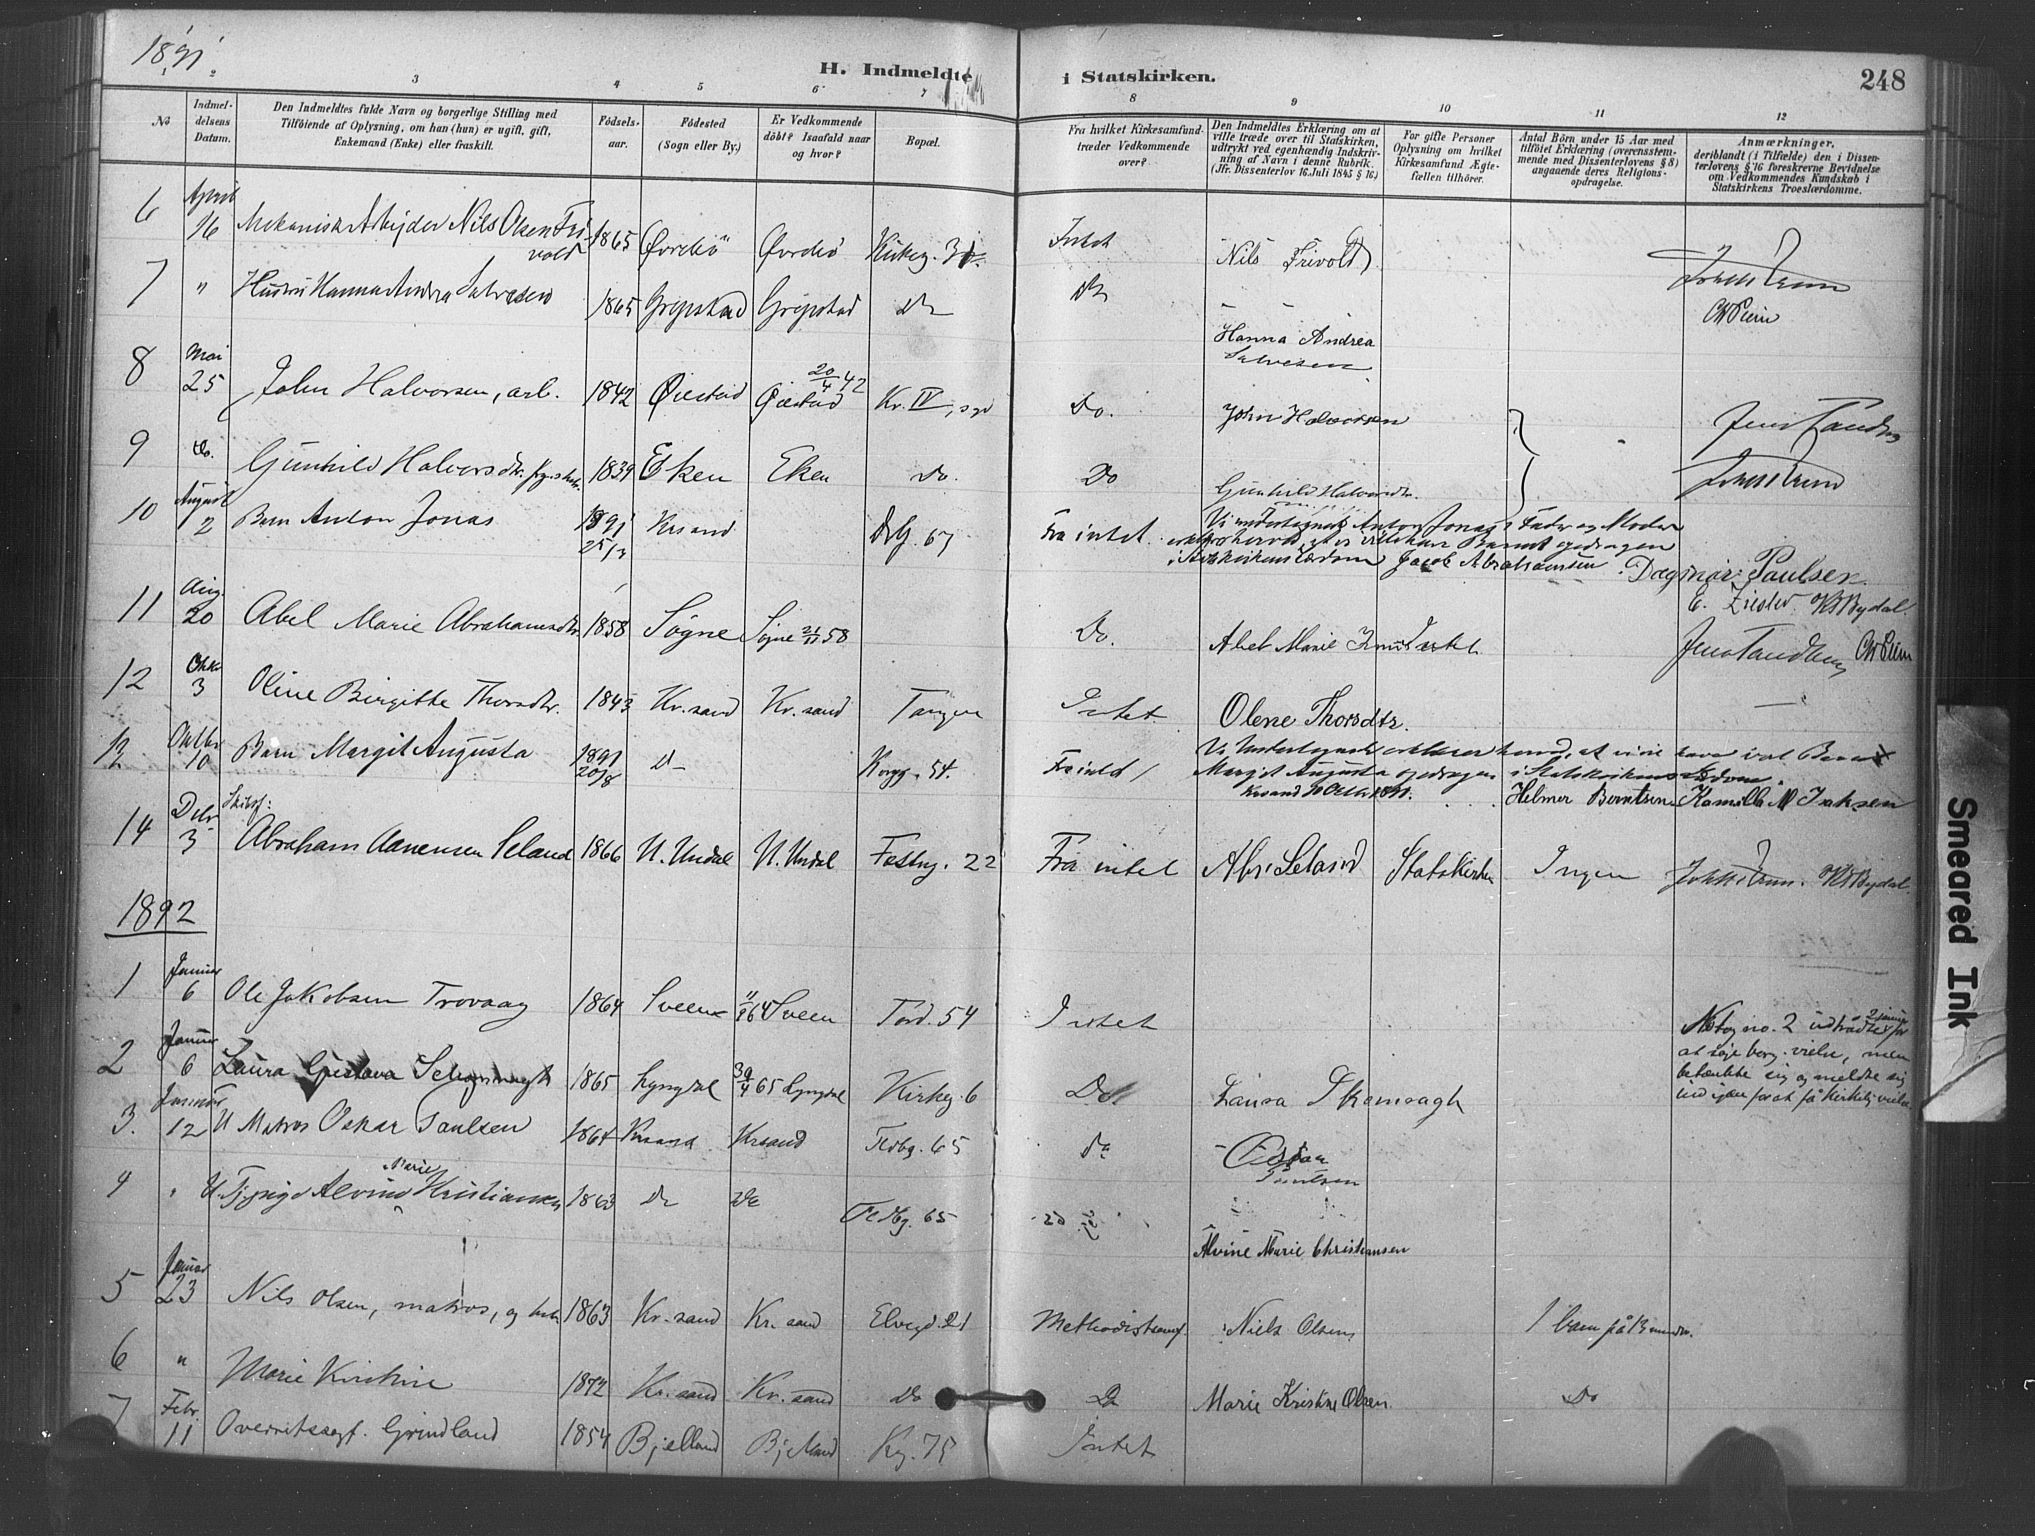 1891
H. Indmeldte i Statskirken.
248
1 2 3 4 5 6 7 8 9 10 11 12
No
Indmeldelsens Datum.
Den Indmeldtes fulde Navn og borgerlige Stilling med Tilføiende af Oplysning, om han (hun) er ugift, gift, Enkemand (Enke) eller fraskilt.
Fødselsaar.
Fødested (Sogn eller By.)
Er Vedkommende døbt? Isaafald naar og hvor?
Bopæl.
Fra hvilket Kirkesamfund træder Vedkommende over?
Den Indmeldtes Erklæring om at ville træde over til Statskirken, udtrykt ved egenhændig Indskrivning af Navn i denne Rubrik. (Jfr. Dissenterlov 16. Juli 1845 § 16)
For gifte Personer Oplysning om hvilket Kirkesamfund Ægtefællen tilhører.
Antal Børn under 15 Aar med tilføiet Erklæring (overensstemmende med Dissenterlovens § 8) angaaende deres Religionsopdragelse.
Anmærkninger, deriblandt (i Tilfælde) den i Dissenterlovens § 16 foreskrevne Bevidnelse om Vedkommendes Kundskab i Statskirkens Troeslærdomme.
6 April 16 Mekanisk Arbeider Nils Olsen Frivold 1865 Øvrebø Øvrebø Kirkeg. Intet Nils Frivold
7 " Hustru Hanna Andrea Salvesen 1865 Gripstad Gripstad Do Do Hanna Andrea Salvesen
8 Mai 25 John Halvorsen, arb. 1842 Øiestad 20/4 42 Øiestad Kr. IV, Do. John Halvorsen
9 do. Gunhild Halvorsdtr. 1839 Eken Eken Do. Do Gunhild Halvorsdtr.
10 August 2 Barn Anton Jonas 1891 25/3 Krsand 67 Fra intet Vi undertegnede Anton Jonas's Fader og Moder
erklære herved, at vi ville have Barnet opdragen
i Statskirkens Lærdom Jacob Abrahamsen Dagmar Paulsen
11 Aug. 20 Abel Marie Abrahamsdtr. 1858 Søgne Søgne 58 Do. Abel Marie
12 Oktbr 3 Oline Birgitte Thorsdtr. 1843 Kr.sand Kr.sand Tangen Intet Olene Thorsdtr.
13 Oktbr 10 Barn Margit Augusta 1891 20/8 Do Kongg. 54. Fra intet Vi Undertegnede erklærer herved, at vi vil have vort Barn
Margit Augusta opdragen i Statskirkens Lærdom.
Krsand 10 Oktb. 1891. Helmer Berntsen Kamilla M Isaksen
14 Debr 3 Abraham Aanensen Seland 1866 U. Undal U. Undal Festng. 22 Fra intet Abr. Seland Statskirken Ingen
1892
1 Januar 6 Ole Jakobsen Trovaag 1864 Sveen 64 Sveen Tord. 54 Intet
2 Januar 6 Laura Gustava 1865 Lyngdal 30/4 65 Lyngdal Kirkeg. 6 Do. Laura
og no. 2 udtrådte
at søge borg. vielse, men
betænkte sig og meldte sig
ind igjen for at få kirkelig vielse
3. Januar 12 U Matros Oskar Paulsen 1864 Krsand Krsand Fledbg. 65 Do Oskar Paulsen
4 " U. Tjpige Alvine Marie Kristiansen 1863 Do Do 65 Alvine Marie Christiansen
5 Januar 23 Nils Olsen, matros, og 1863 Kr.sand Kr.sand Elvegd. 21 Methodistsamf. Niels Olsen 1 barn på 13
6 " Marie Kristine 1872 Kr.sand Kr.sand Do Do Marie Kristine Olsen Do
7 Febr. 11 Overretssagf. Grindland 1854 Bjelland Bjelland Kg. 75 Intet
Smeared Ink